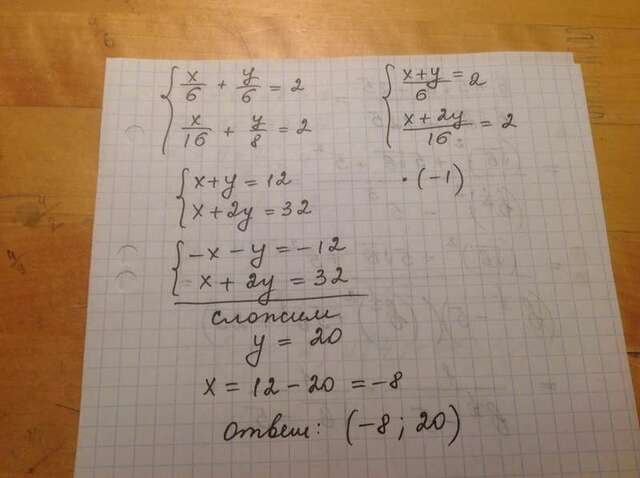 x/6 + y/6 = 2
x/16 + y/8 = 2
(x+y)/6 = 2
(x+2y)/16 = 2
x+y = 12 · (-1)
x+2y = 32
-x-y = -12
x+2y = 32
сложим
y = 20
x = 12-20 = -8
Ответ: (-8; 20)